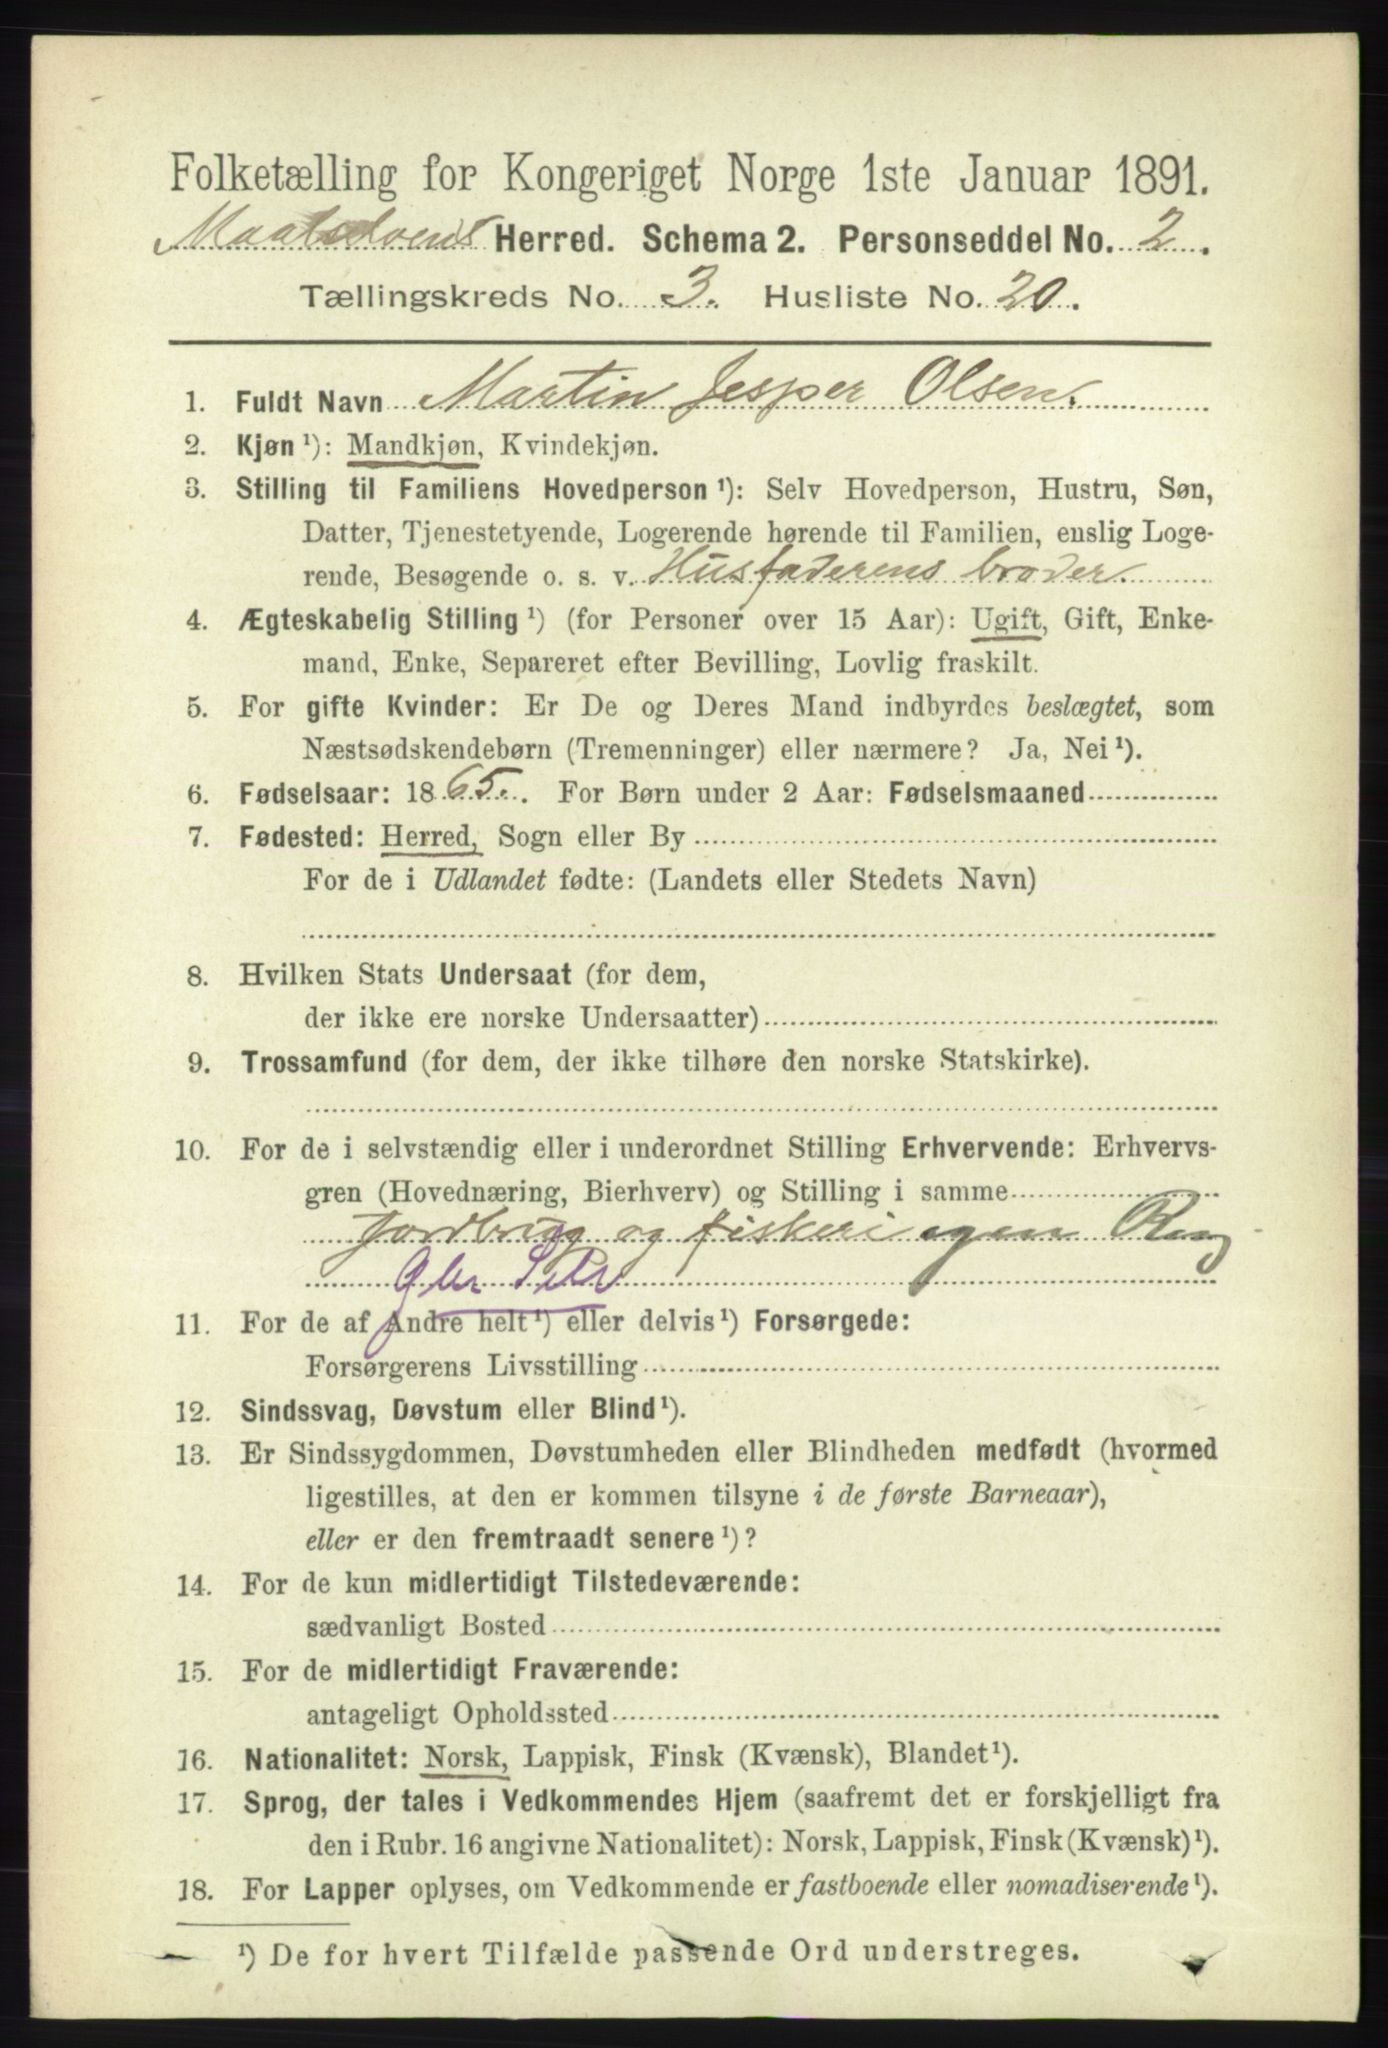 Folketælling for Kongeriget Norge 1ste Januar 1891.
Maalselvens Herred. Schema 2. Personseddel No. 2.
Tællingskreds No. 3. Husliste No. 20.
1. Fuldt Navn Martin Jesper Olsen.
2. Kjøn ¹): Mandkjøn, Kvindekjøn.
3. Stilling til Familiens Hovedperson ¹): Selv Hovedperson, Hustru, Søn,
Datter, Tjenestetyende, Logerende hørende til Familien, enslig Loge-
rende, Besøgende o. s. v. Husfaderens broder.
4. Ægteskabelig Stilling ¹) (for Personer over 15 Aar): Ugift, Gift, Enke-
mand, Enke, Separeret efter Bevilling, Lovlig fraskilt.
5. For gifte Kvinder: Er De og Deres Mand indbyrdes beslægtet, som
Næstsødskendebørn (Tremenninger) eller nærmere? Ja, Nei ¹).
6. Fødselsaar: 1865. For Børn under 2 Aar: Fødselsmaaned
7. Fødested: Herred, Sogn eller By
For de i Udlandet fødte: (Landets eller Stedets Navn)
8. Hvilken Stats Undersaat (for dem,
der ikke ere norske Undersaatter)
9. Trossamfund (for dem, der ikke tilhøre den norske Statskirke).
10. For de i selvstændig eller i underordnet Stilling Erhvervende: Erhvervs-
gren (Hovednæring, Bierhverv) og Stilling i samme
Jordbrug og fiskeri egen Reg
Gbr Selv
11. For de af Andre helt ¹) eller delvis ¹) Forsørgede:
Forsørgerens Livsstilling
12. Sindssvag, Døvstum eller Blind ¹).
13. Er Sindssygdommen, Døvstumheden eller Blindheden medfødt (hvormed
ligestilles, at den er kommen tilsyne i de første Barneaar),
eller er den fremtraadt senere ¹)?
14. For de kun midlertidigt Tilstedeværende:
sædvanligt Bosted
15. For de midlertidigt Fraværende:
antageligt Opholdssted
16. Nationalitet: Norsk, Lappisk, Finsk (Kvænsk), Blandet ¹).
17. Sprog, der tales i Vedkommendes Hjem (saafremt det er forskjelligt fra
den i Rubr. 16 angivne Nationalitet): Norsk, Lappisk, Finsk (Kvænsk) ¹).
18. For Lapper oplyses, om Vedkommende er fastboende eller nomadiserende ¹).
¹) De for hvert Tilfælde passende Ord understreges.